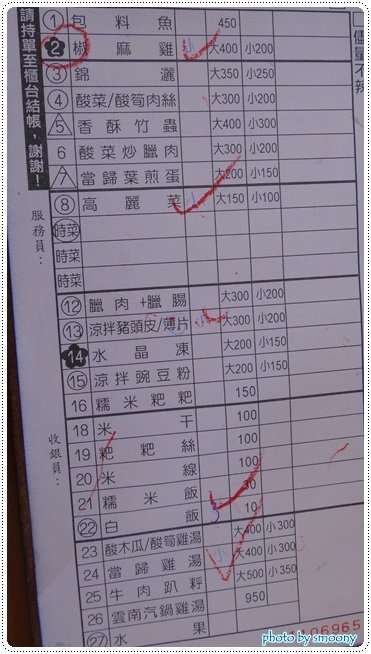 請持單至櫃台結帳，謝謝！
儘量不辣
服務員：
收銀員：
① 包料魚 450
❷ 椒麻雞 小 大400 小200
③ 錦灑 大350 小250
④ 酸菜/酸筍肉絲 大300 小200
5 香酥竹蟲 大400 小300
6 酸菜炒臘肉 大300 小200
7 當歸葉煎蛋 大200 小150
⑧ 高麗菜 小 大150 小100
時菜
時菜
時菜
⑫ 臘肉+臘腸 大300 小200
⑬ 涼拌豬頭皮/薄片 小 大300 小200
14 水晶凍 大200 小150
⑮ 涼拌豌豆粉 大200 小150
16 糯米粑粑 150
18 米干 100
19 粑粑絲 100
20 米線 100
21 糯米飯 30
㉒ 白飯 3 10
23 酸木瓜/酸筍雞湯 大400 小300
24 當歸雞湯 小 大400 小300
25 牛肉趴籽 大500 小350
26 雲南汽鍋雞湯 950
㉗ 水果
06965
photo by smoony